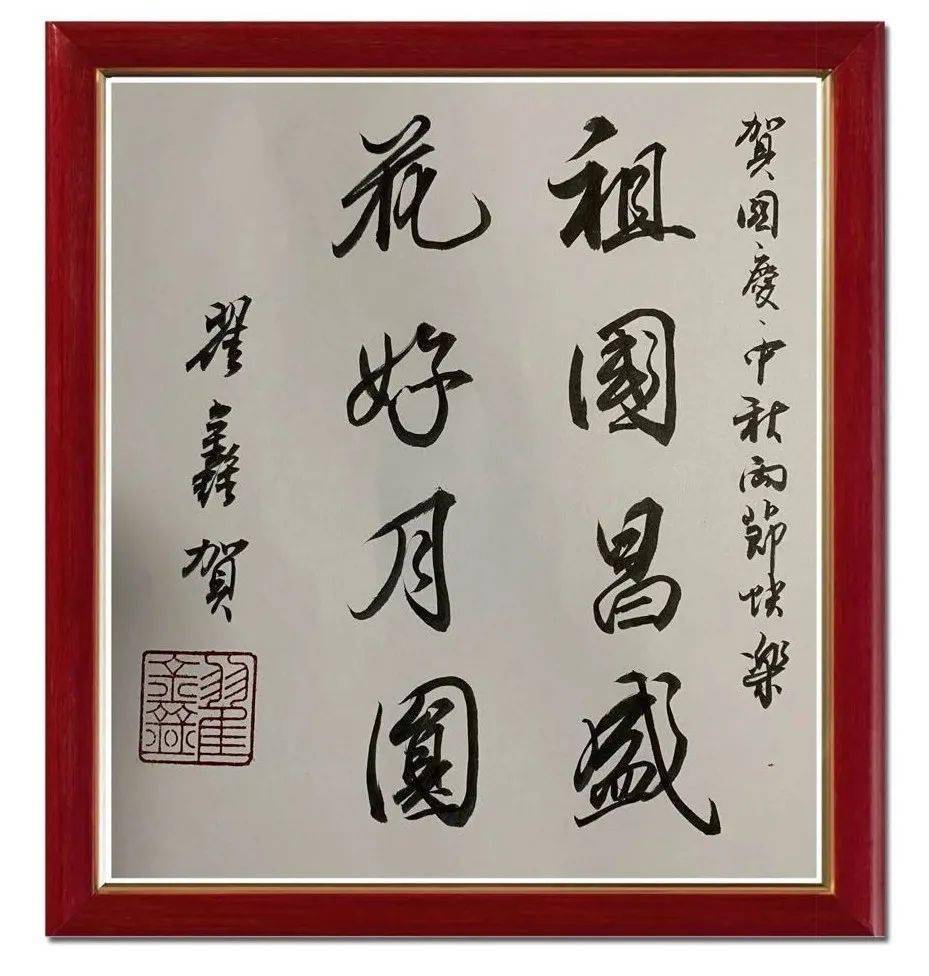 賀國慶中秋两節快樂
祖國昌盛
花好月圓
翟鑫賀
翟鑫